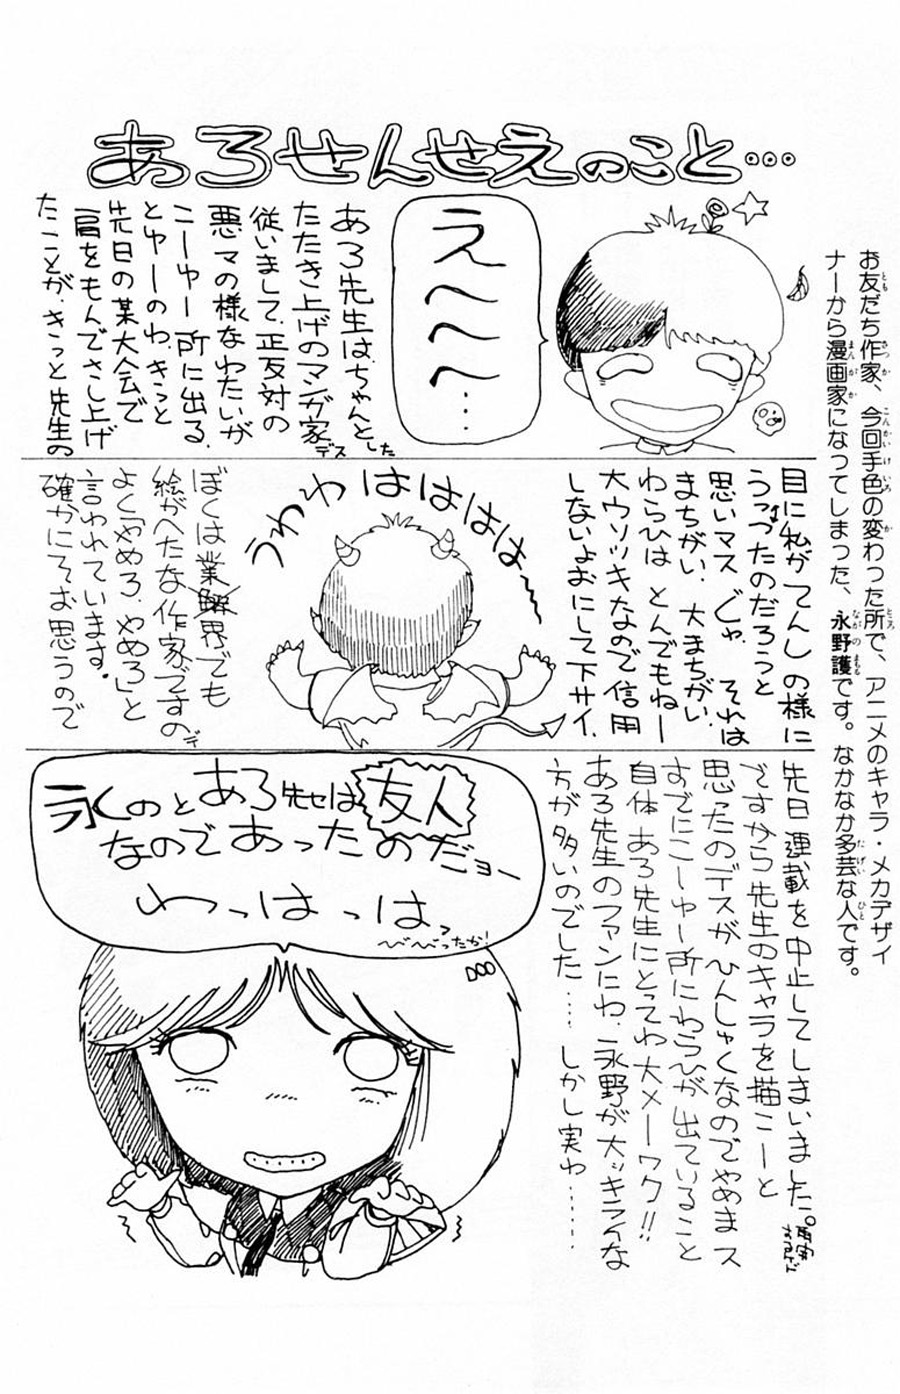 お友だち作家、今回手色の変わった所で、アニメのキャラ・メカデザイ
ナーから漫画家になってしまった、永野護です。なかなか多芸な人です。
あろせんせえのこと…
えへへへ……
あろ先生は、ちゃんとした
たたき上げのマンガ家デス
従いまして、正反対の
悪マの様なわたいが
こーゆー所に出る、
とゆーのわ、きっと
先日の某大会で
肩をもんでさし上げ
たことが、きっと先生の
目に私がてんしの様に
うつったのだろうと
思いマス じゃ、それは
まちがい、大まちがい、
わらひは とんでもねー
大ウソツキなので信用
しないよおにして下サイ、
うわわはははははは〜
ぼくは業界でも
絵がへたな作家ですのデ
よく「やめろ、やめろ」と
言われています。
確かにそお思うので
先日 連載を中止してしまいました。
ですから先生のキャラを描こーと
思ったのデスが ひんしゅくなのでやめまス
すでにこーゆー所にわらひが出ていること
自体 あろ先生にとってわ大メーワク!!
あろ先生のファンにわ、永野が大ッキライな
方が多いのでした…… しかし実わ………
永のとあろ先セは友人
なのであったのだョー
わっはっはっ
〜びびったか!